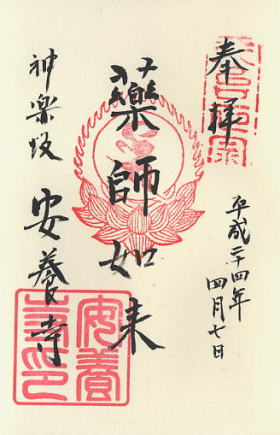 奉拝
平成二十四年
四月七日
薬師如来
神楽坂
安養寺
安養寺印